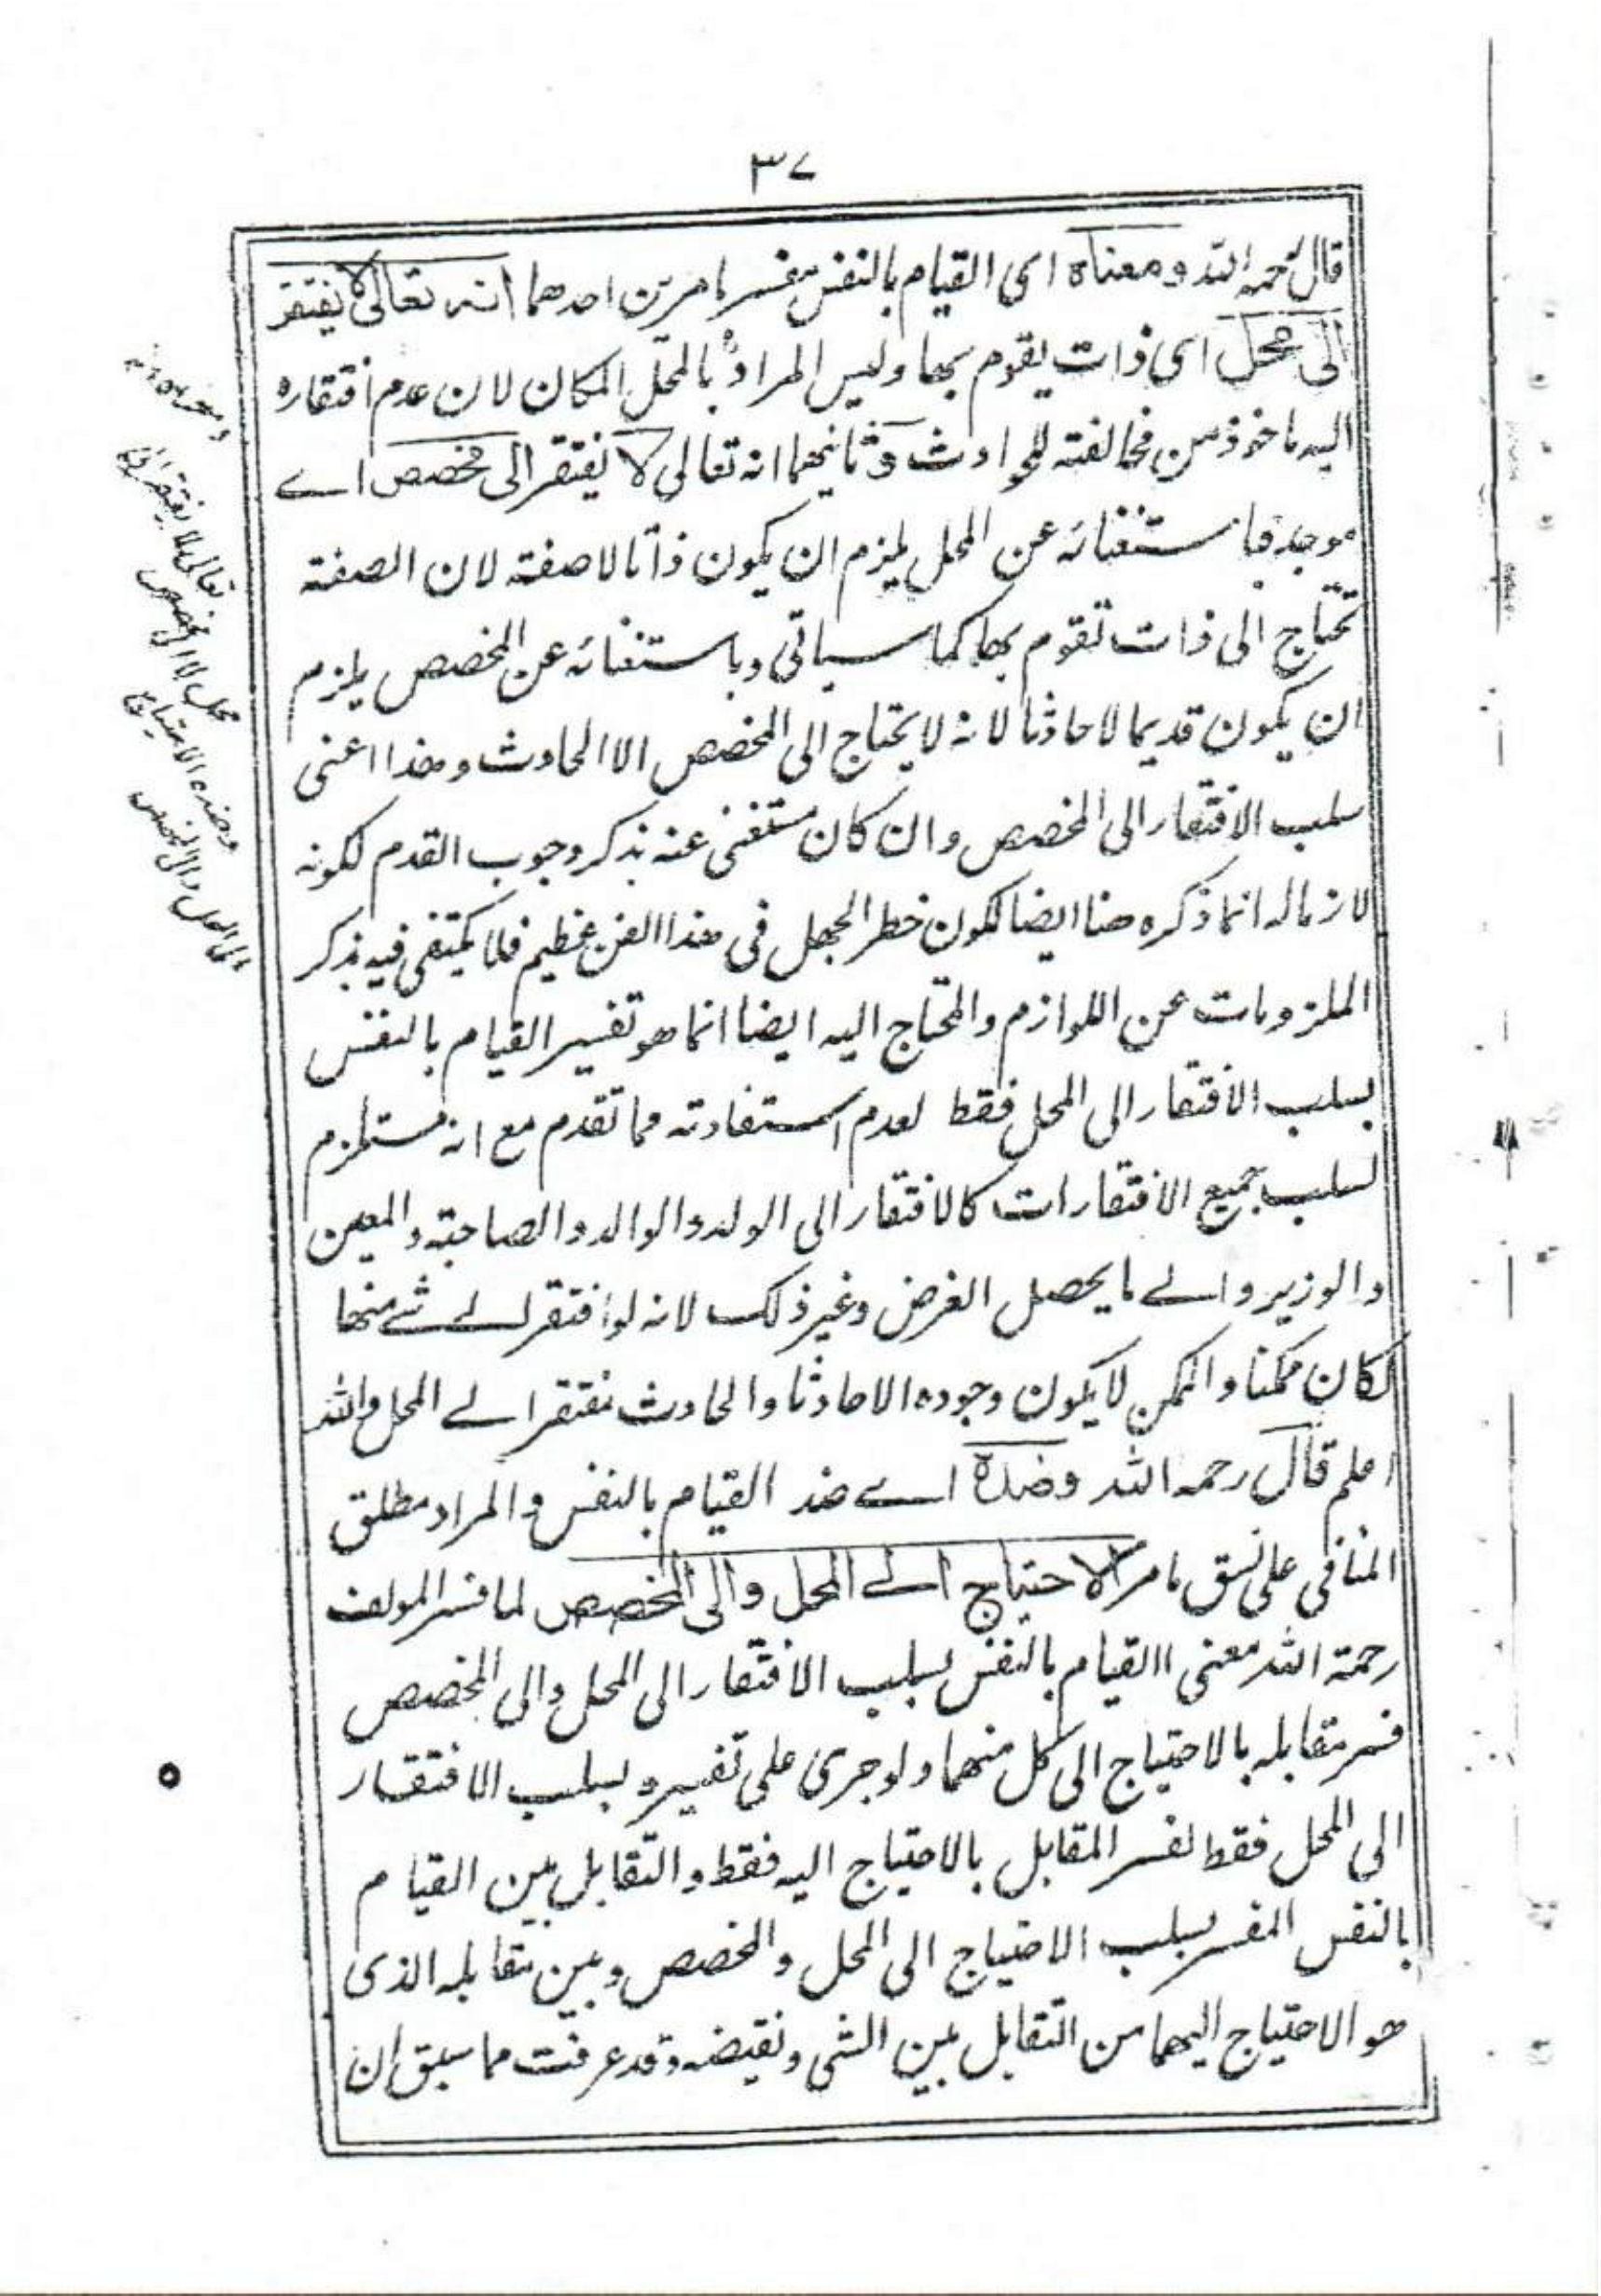 ٣٧
قال رحمه الله ومعناه اى القيام بالنفس يفسر بامرين احدهما انه تعالى لا يفتقر
الى محل اى ذات يقوم بها وليس المراد بالمحل المكان لان عدم افتقاره
اليه ماخوذ من مخالفته للحوادث وثانيهما انه تعالى لا يفتقر الى مخصص اے
موجد فباستغنائه عن المحل يلزم ان يكون ذاتا لا صفته لان الصفته
تحتاج الى ذات تقوم بها كما سياتى وباستغنائه عن المخصص يلزم
ان يكون قديما لا حادثا لانه لا يحتاج الى المخصص الا الحادث وهذا اعنى
سلب الافتقار الى المخصص وان كان مستغنى عنه بذكر وجوب القدم لكونه
لازما له انما ذكره هنا ايضا لكون خطر الجهل فى هذا الفن عظيم فلا يكتفى فيه بذكر
الملزومات عن اللوازم والمحتاج اليه ايضا انما هو تفسير القيام بالنفس
بسلب الافتقار الى المحل فقط لعدم استفادته مما تقدم مع انه مستلزم
لسلب جميع الافتقارات كالافتقار الى الولد والوالد والصاحبته والمعين
والوزير والے ما يحصل الغرض وغير ذلك لانه لو افتقر لے شے منها
لكان ممكنا والممكن لا يكون وجوده الا حادثا والحادث يفتقر الے المحل والله
اعلم قال رحمه الله وضده اے ضد القيام بالنفس والمراد مطلق
المنافى على نسق ما مر الاحتياج الے المحل والى المخصص لما فسر المولف
رحمة الله معنى االقيام بالنفس بسلب الافتقار الى المحل والى المخصص
فسر مقابله بالاحتياج الى كل منهما ولو جرى على تفسيره بسلب الافتقار
الى المحل فقط لفسر المقابل بالاحتياج اليه فقط والتقابل بين القيام
بالنفس المفسر بسلب الاحتياج الى المحل والمخصص وبين مقابله الذى
هو الاحتياج اليهما من التقابل بين الشى ونقيضه وقد عرفت مما سبق ان
تعالى لا يفتقر الى
محل ولا الى مخصص
وضده الاحتياج
الى المحل والى المخصص